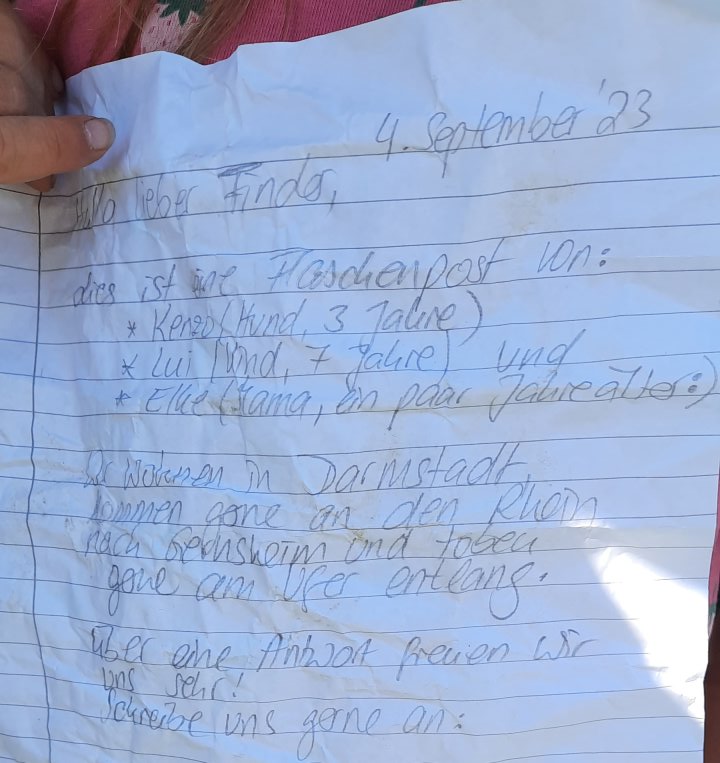 4. September '23
Hallo lieber Finder,
dies ist eine Flaschenpost von:
* Kenzo (Hund, 3 Jahre)
* Lui (Kind, 7 Jahre) und
* Elke (Mama, ein paar Jahre älter:)
Wir wohnen in Darmstadt,
kommen gerne an den Rhein
nach Gernsheim und toben
gerne am Ufer entlang.
Über eine Antwort freuen wir
uns sehr!
Schreibe uns gerne an: